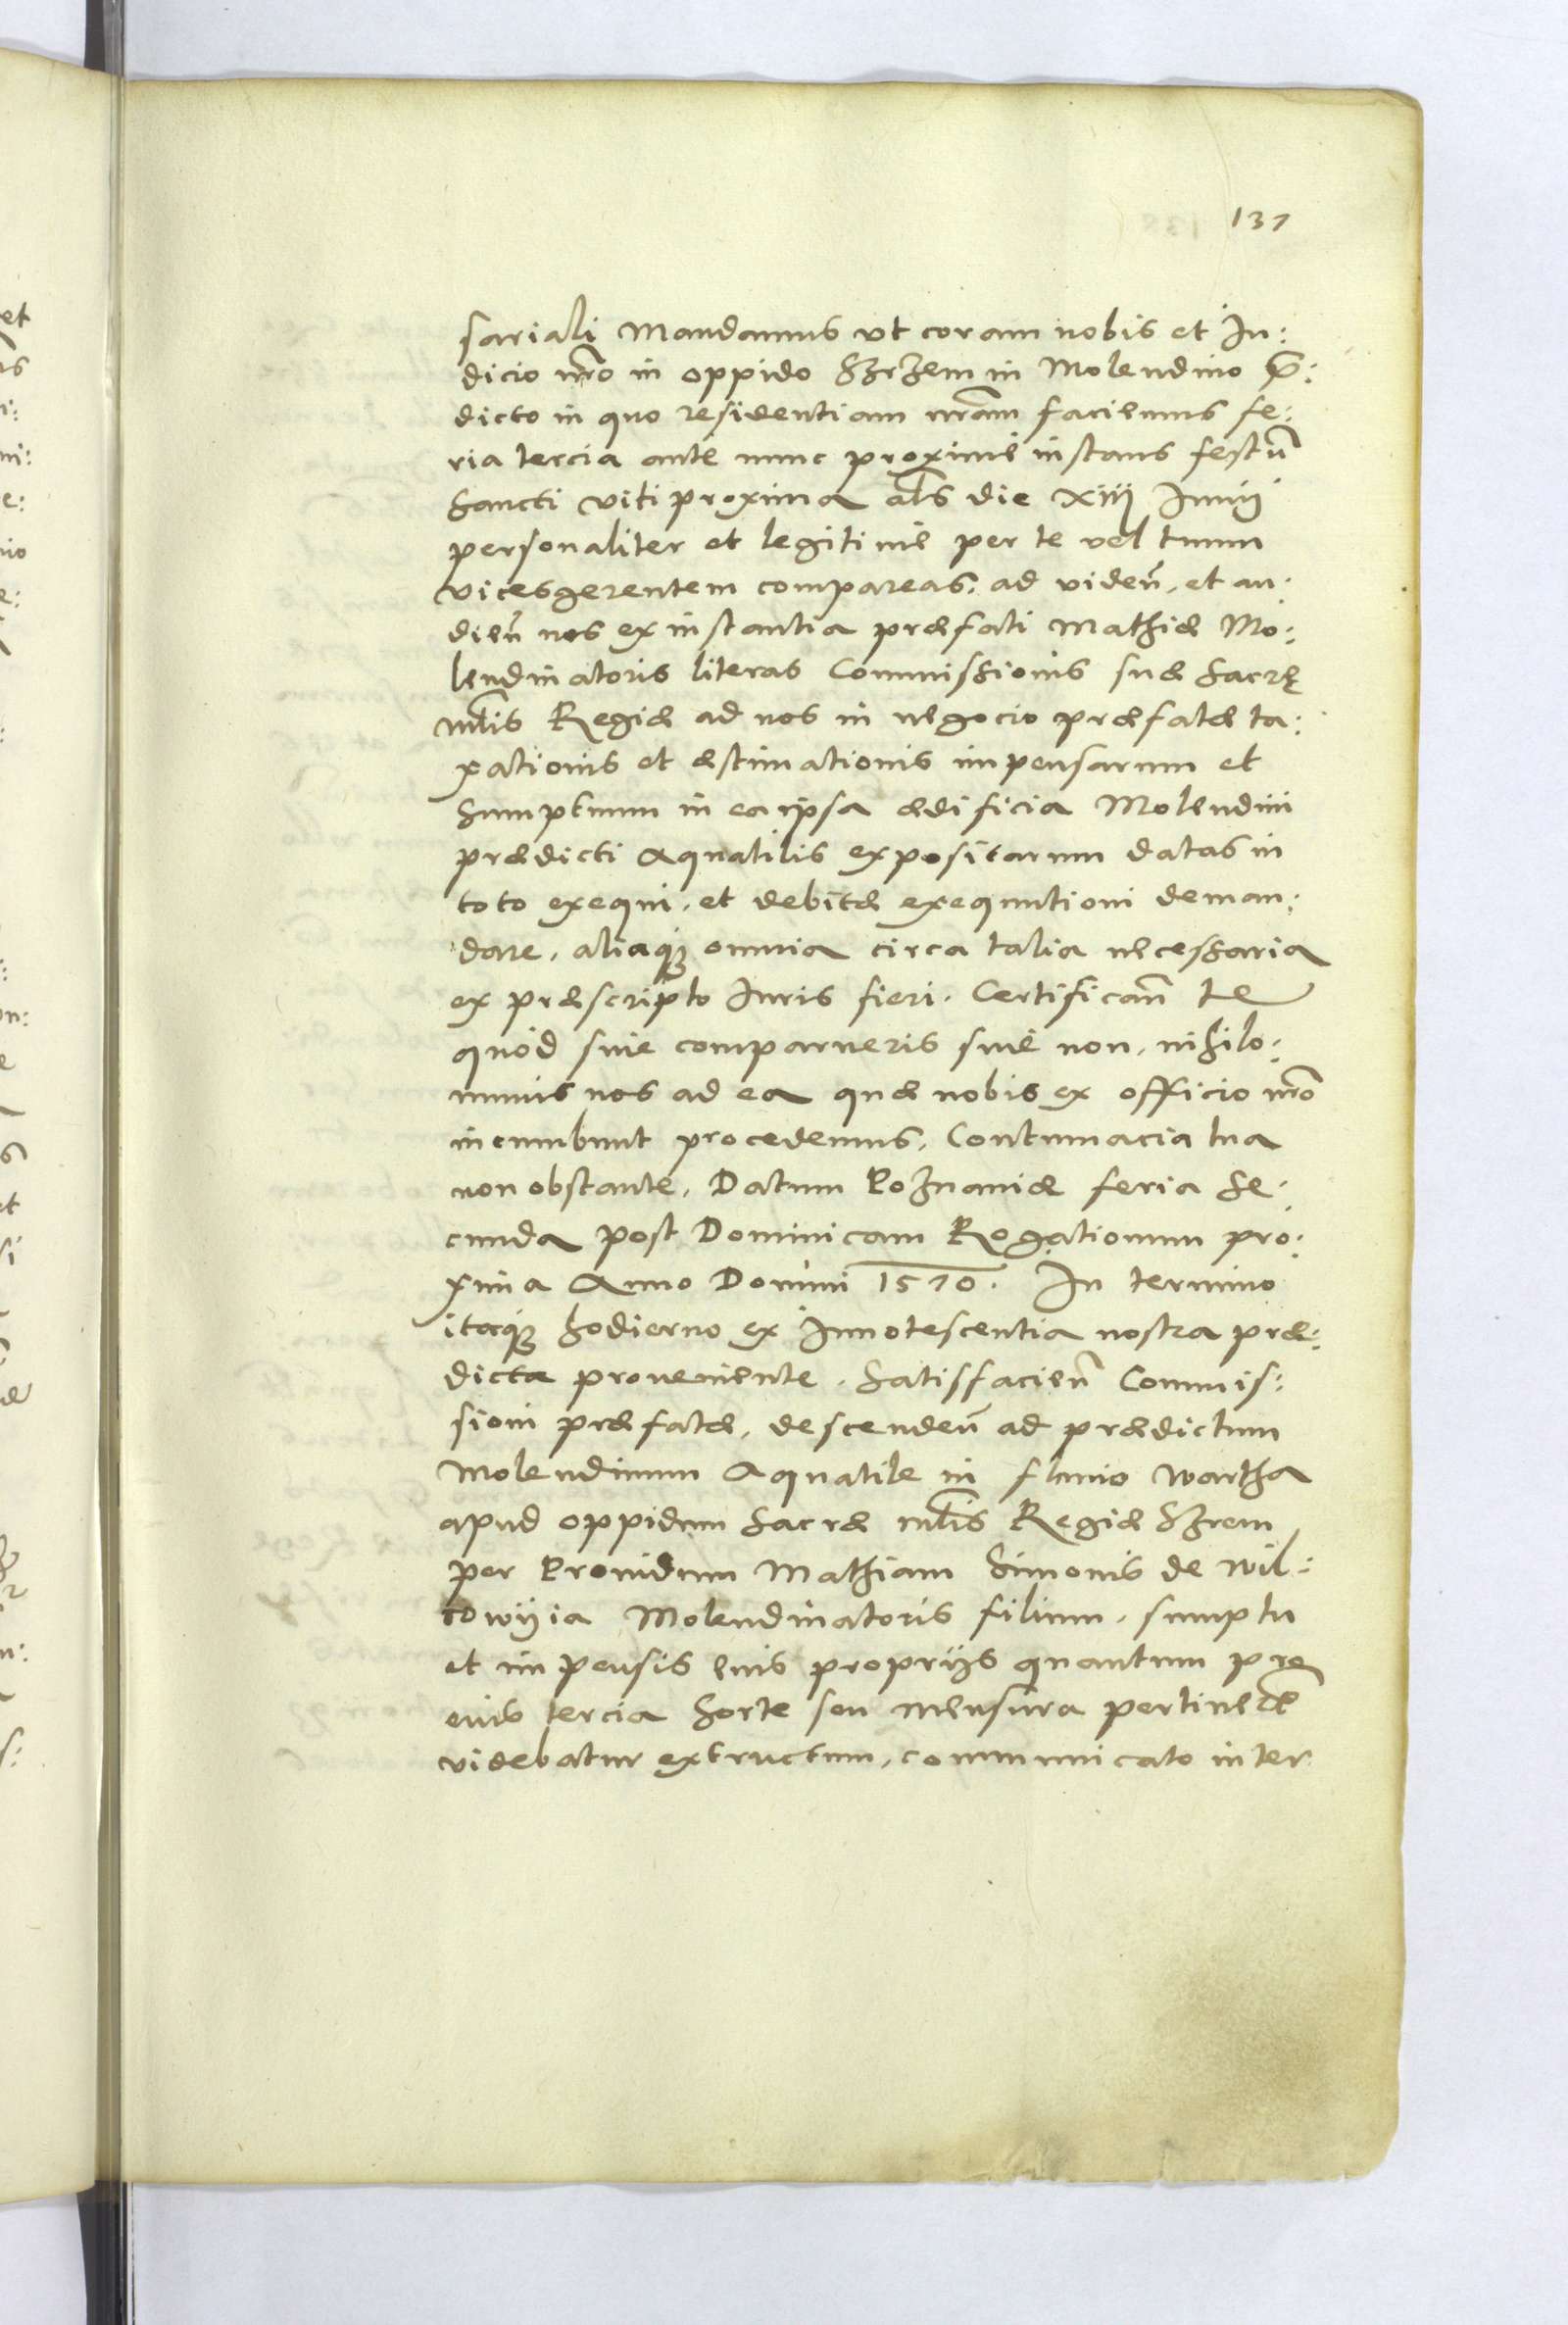 137
sariali Mandamus vt coram nobis et Iu:
dicio nr̃o in oppido SzrZem in Molendino p̃:
dicto in quo residentiam nr̃am faciemus fe:
ria tercia antè nunc proximè instans festũ
Sancti Viti proxima al̃s die xiij Iunij
personaliter et legitimè per te vel tuum
vicesgerentem compareas, ad viden̄, et au:
dien̄ nos ex instantia præfati Mathiæ Mo:
lendinatoris literas Commissionis suæ Sacrę
Mt̃is Regiæ ad nos in negocio præfatæ ta:
xationis et æstimationis impensarum et
Sumptuum in ea ipsa ædificia Molendini
prædicti Aquatilis expositarum datas in
toto exequi, et debitæ exequutioni deman:
dare, aliaq́ꝫ omnia circa talia necessaria
ex præscripto Iuris fieri. Certifican̄ te
quòd siue comparueris siuè non, nihilo:
minus nos ad ea quæ nobis ex officio nr̃o
incumbunt procedemus, Contumacia tua
non obstante, Datum Poznaniæ feria Se:
cunda post Dominicam Rogationum pro:
xima Anno Domini 1570. In termino
itaq́ꝫ hodierno ex Innotescentia nostra præ:
dicta proueniente, Satisfacien̄ Commis:
sioni præfatæ, descenden̄ ad prædictum
Molendinum Aquatile in fluuio Wartha
apud oppidum Sacræ Mt̃is Regiæ Szrem
per Prouidum Mathiam Simonis de Wil:
cowÿia Molendinatoris filium, sumptu
et impensis eius proprijs quantum pro
eius tercia Sorte seu mensura pertinere
videbatur extructum, communicato inter